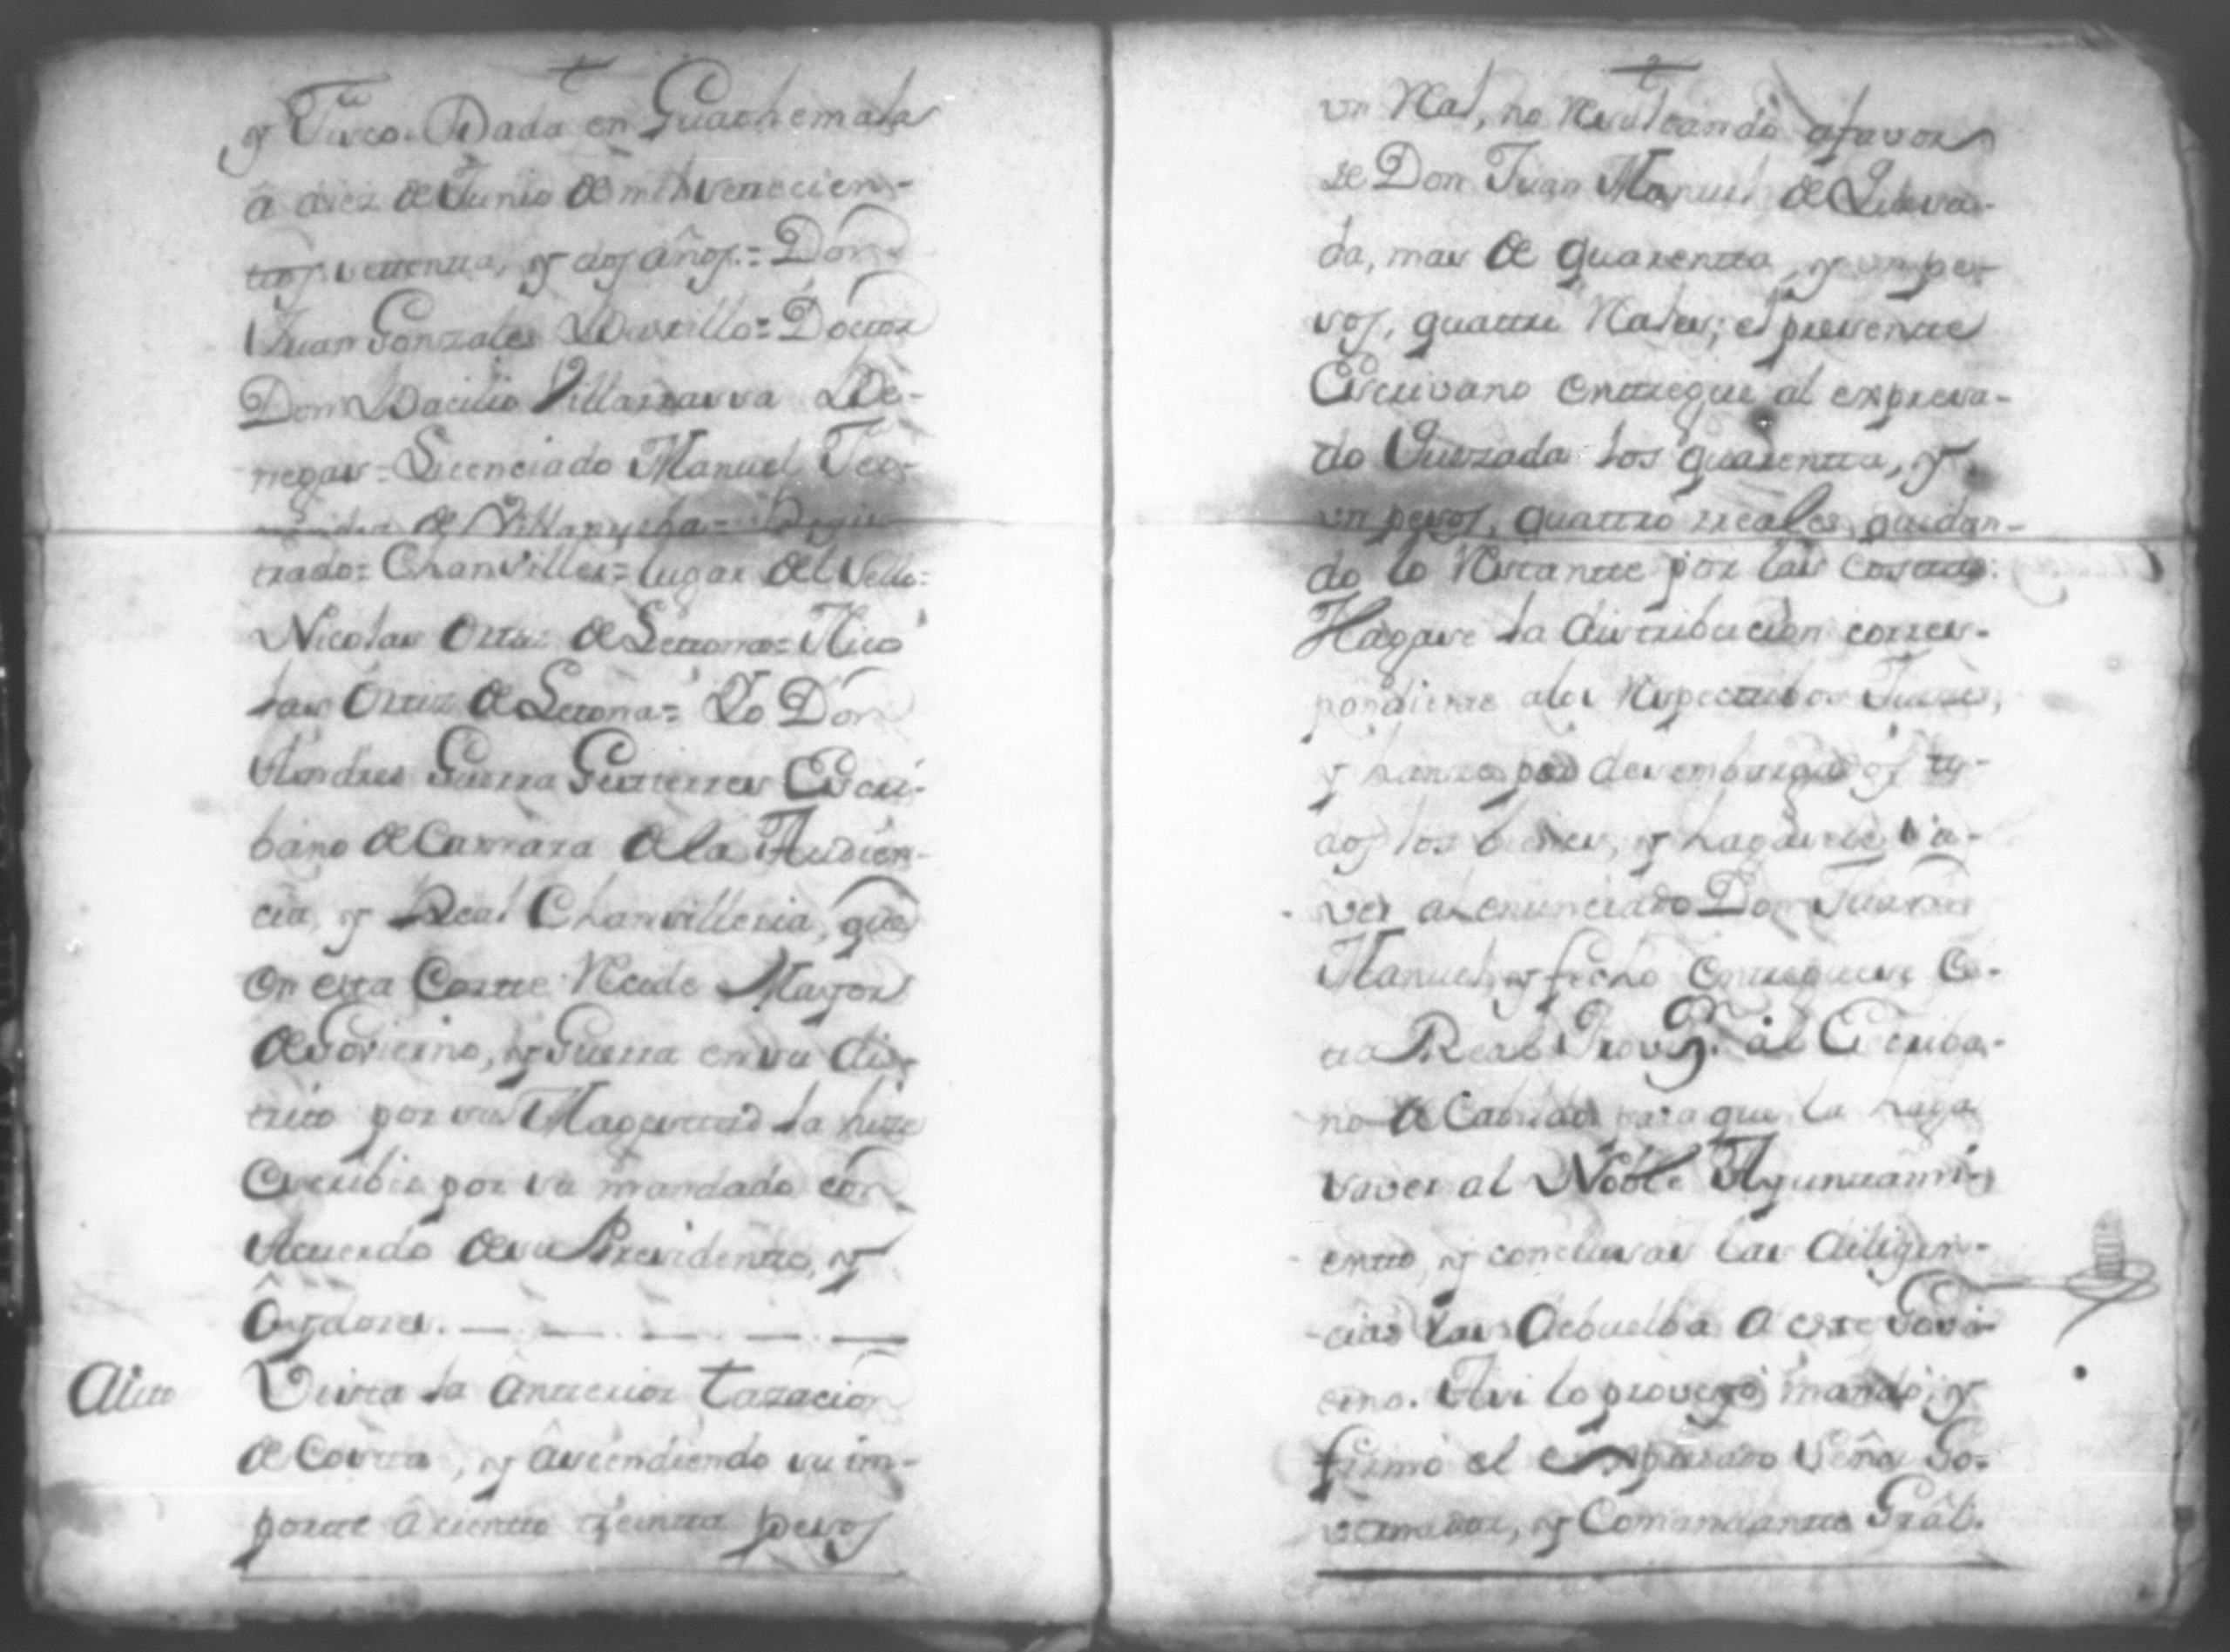 y Fisco. Dada en Guathemala
â diez de Junio de mil setecien-
tos setenta, y dos años.= Don
Juan Gonzales Bustillo= Doctor
Don Bacilio Villarrasa Be-
negas= Licenciado Manuel Fer-
de Villanueba= Regis
trado= Chanviller= lugar del Sello=
Nicolas Ortiz de Letona= Nico
las Ortiz de Letona= Yo Don
Andres Guerra Gutierres Escri-
bano de Camara de la Audien-
cia, y Real Chansilleria, que
en esta Corte Reside Mayor
de Govierno, y Guerra en su dis-
trito por su Magestad la hize
escribir por su mandado con
Acuerdo de su Presidente, y
Oydores.
Auto
Vista la anterior tazacion
de Costas, y asciendiendo su im-
porte â ciento treinta pesos
un Real, no Resultando a favor
de Don Juan Manuel de Quesa-
da, mas de quarenta, y un pe-
sos, quatro Reales; el presente
Escrivano entregue al expresa-
do Quezada los quarenta, y
un pesos, quatro rreales, quedan-
do lo Restante por las costas.
Hagase la distribucion corres-
pondiente a los Respectibos
y por desembargados to-
dos los bienes, y hagasele sa-
ver al enunciado Don Juan
Manuel, y fecho entreguese es-
ta Real Prov.on al Escriba-
no de Cabildo para que la haga
saver al Noble Ayuntami-
ento, y conclusas las diligen-
cias las debuelba a este Govi-
erno. Asi lo proveyó, mandó, y
firmó el expresado Señor Go-
vernador, y Comandante Grâl.